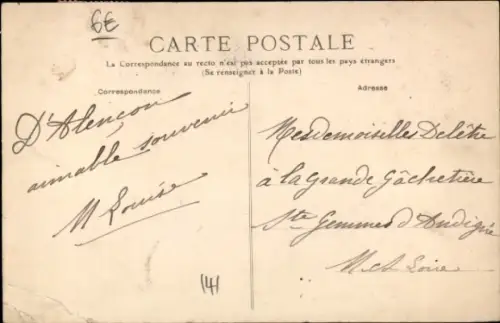 6E
CARTE POSTALE
La Correspondance au recto n'est pas acceptée par tous les pays étrangers
(Se renseigner à la Poste)
Correspondance
D'Alençon
aimable souvenir
M Louise
Adresse
Mesdemoiselles Delêtre
à la Grande Gâchetière
Ste Gemmes d'Andigné
M et Loire
141